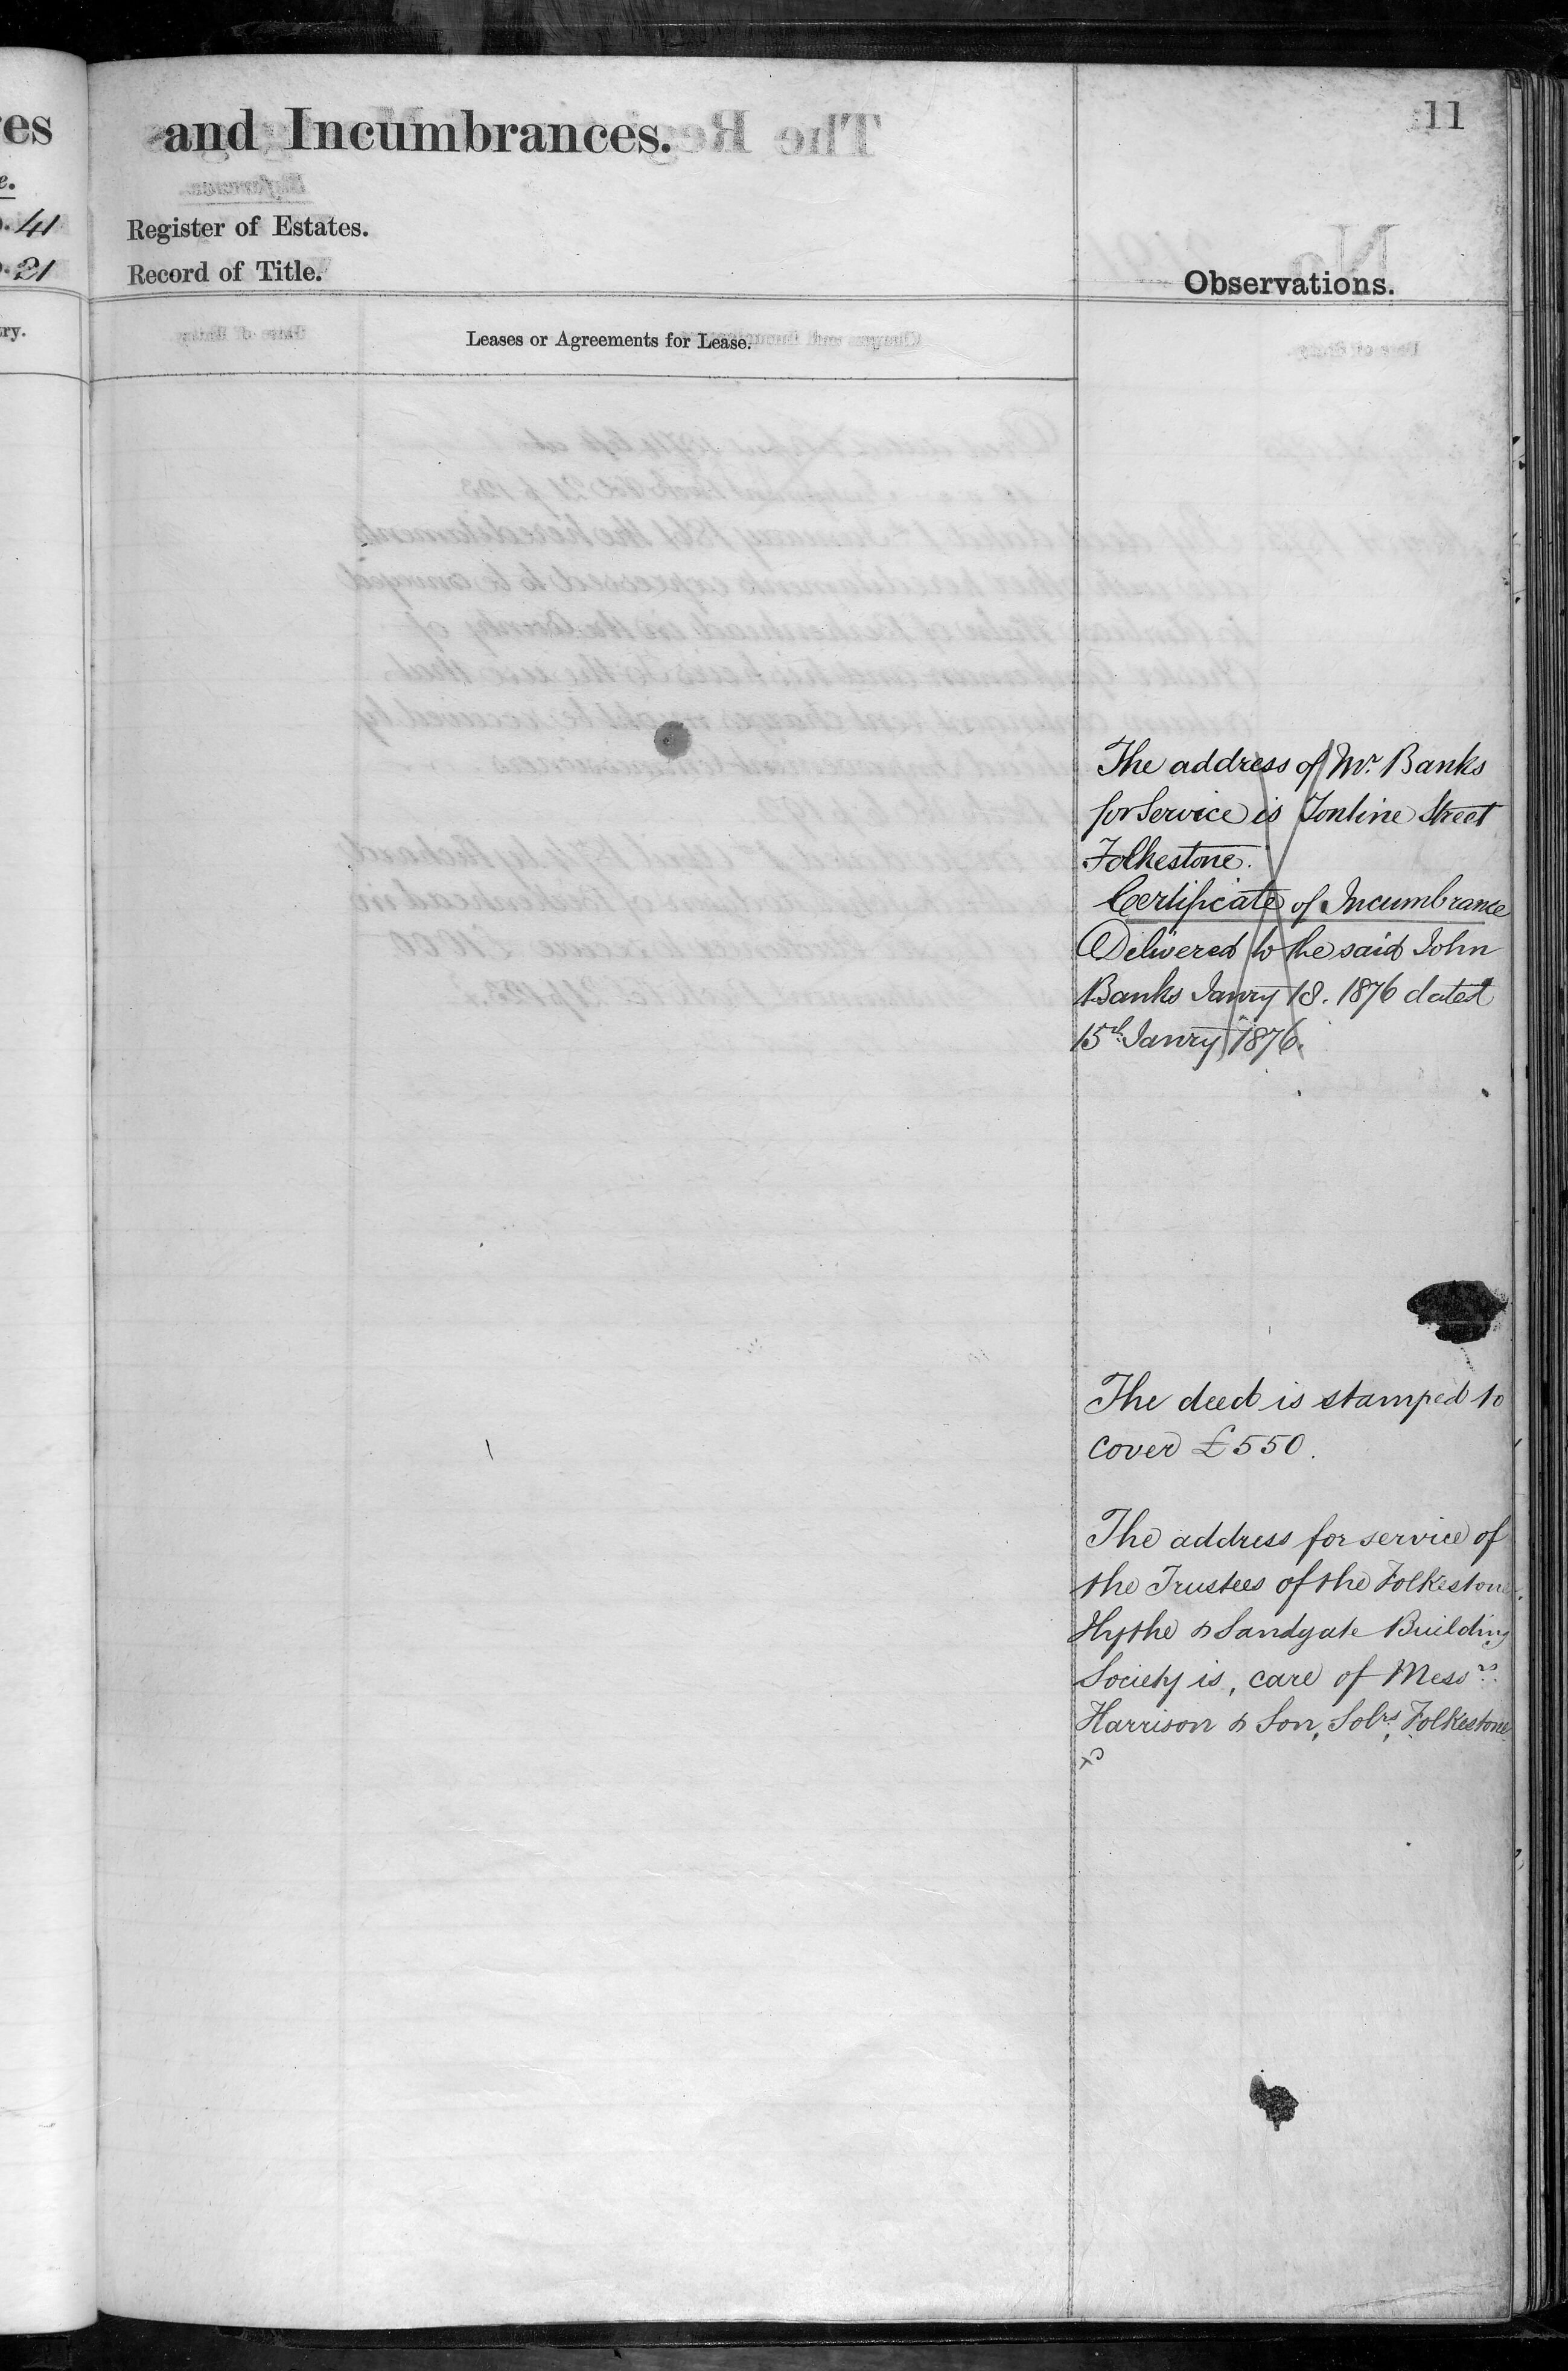 es
e.
41
21
ry.
11
and Incumbrances.
Register of Estates.
Record of Title.
Observations.
Leases or Agreements for Lease.
The address of Mr. Banks
for Service is Tontine Street
Folkestone.
Certificate of Incumbrance
Delivered to the said John
Banks Janry 18. 1876 dated
15th Janry 1876.
The deed is stamped to
cover £550.
The address for service of
the Trustees of the Folkestone
Hythe & Sandgate Building
Society is, care of Messrs.
Harrison & Son, Solrs, Folkestone